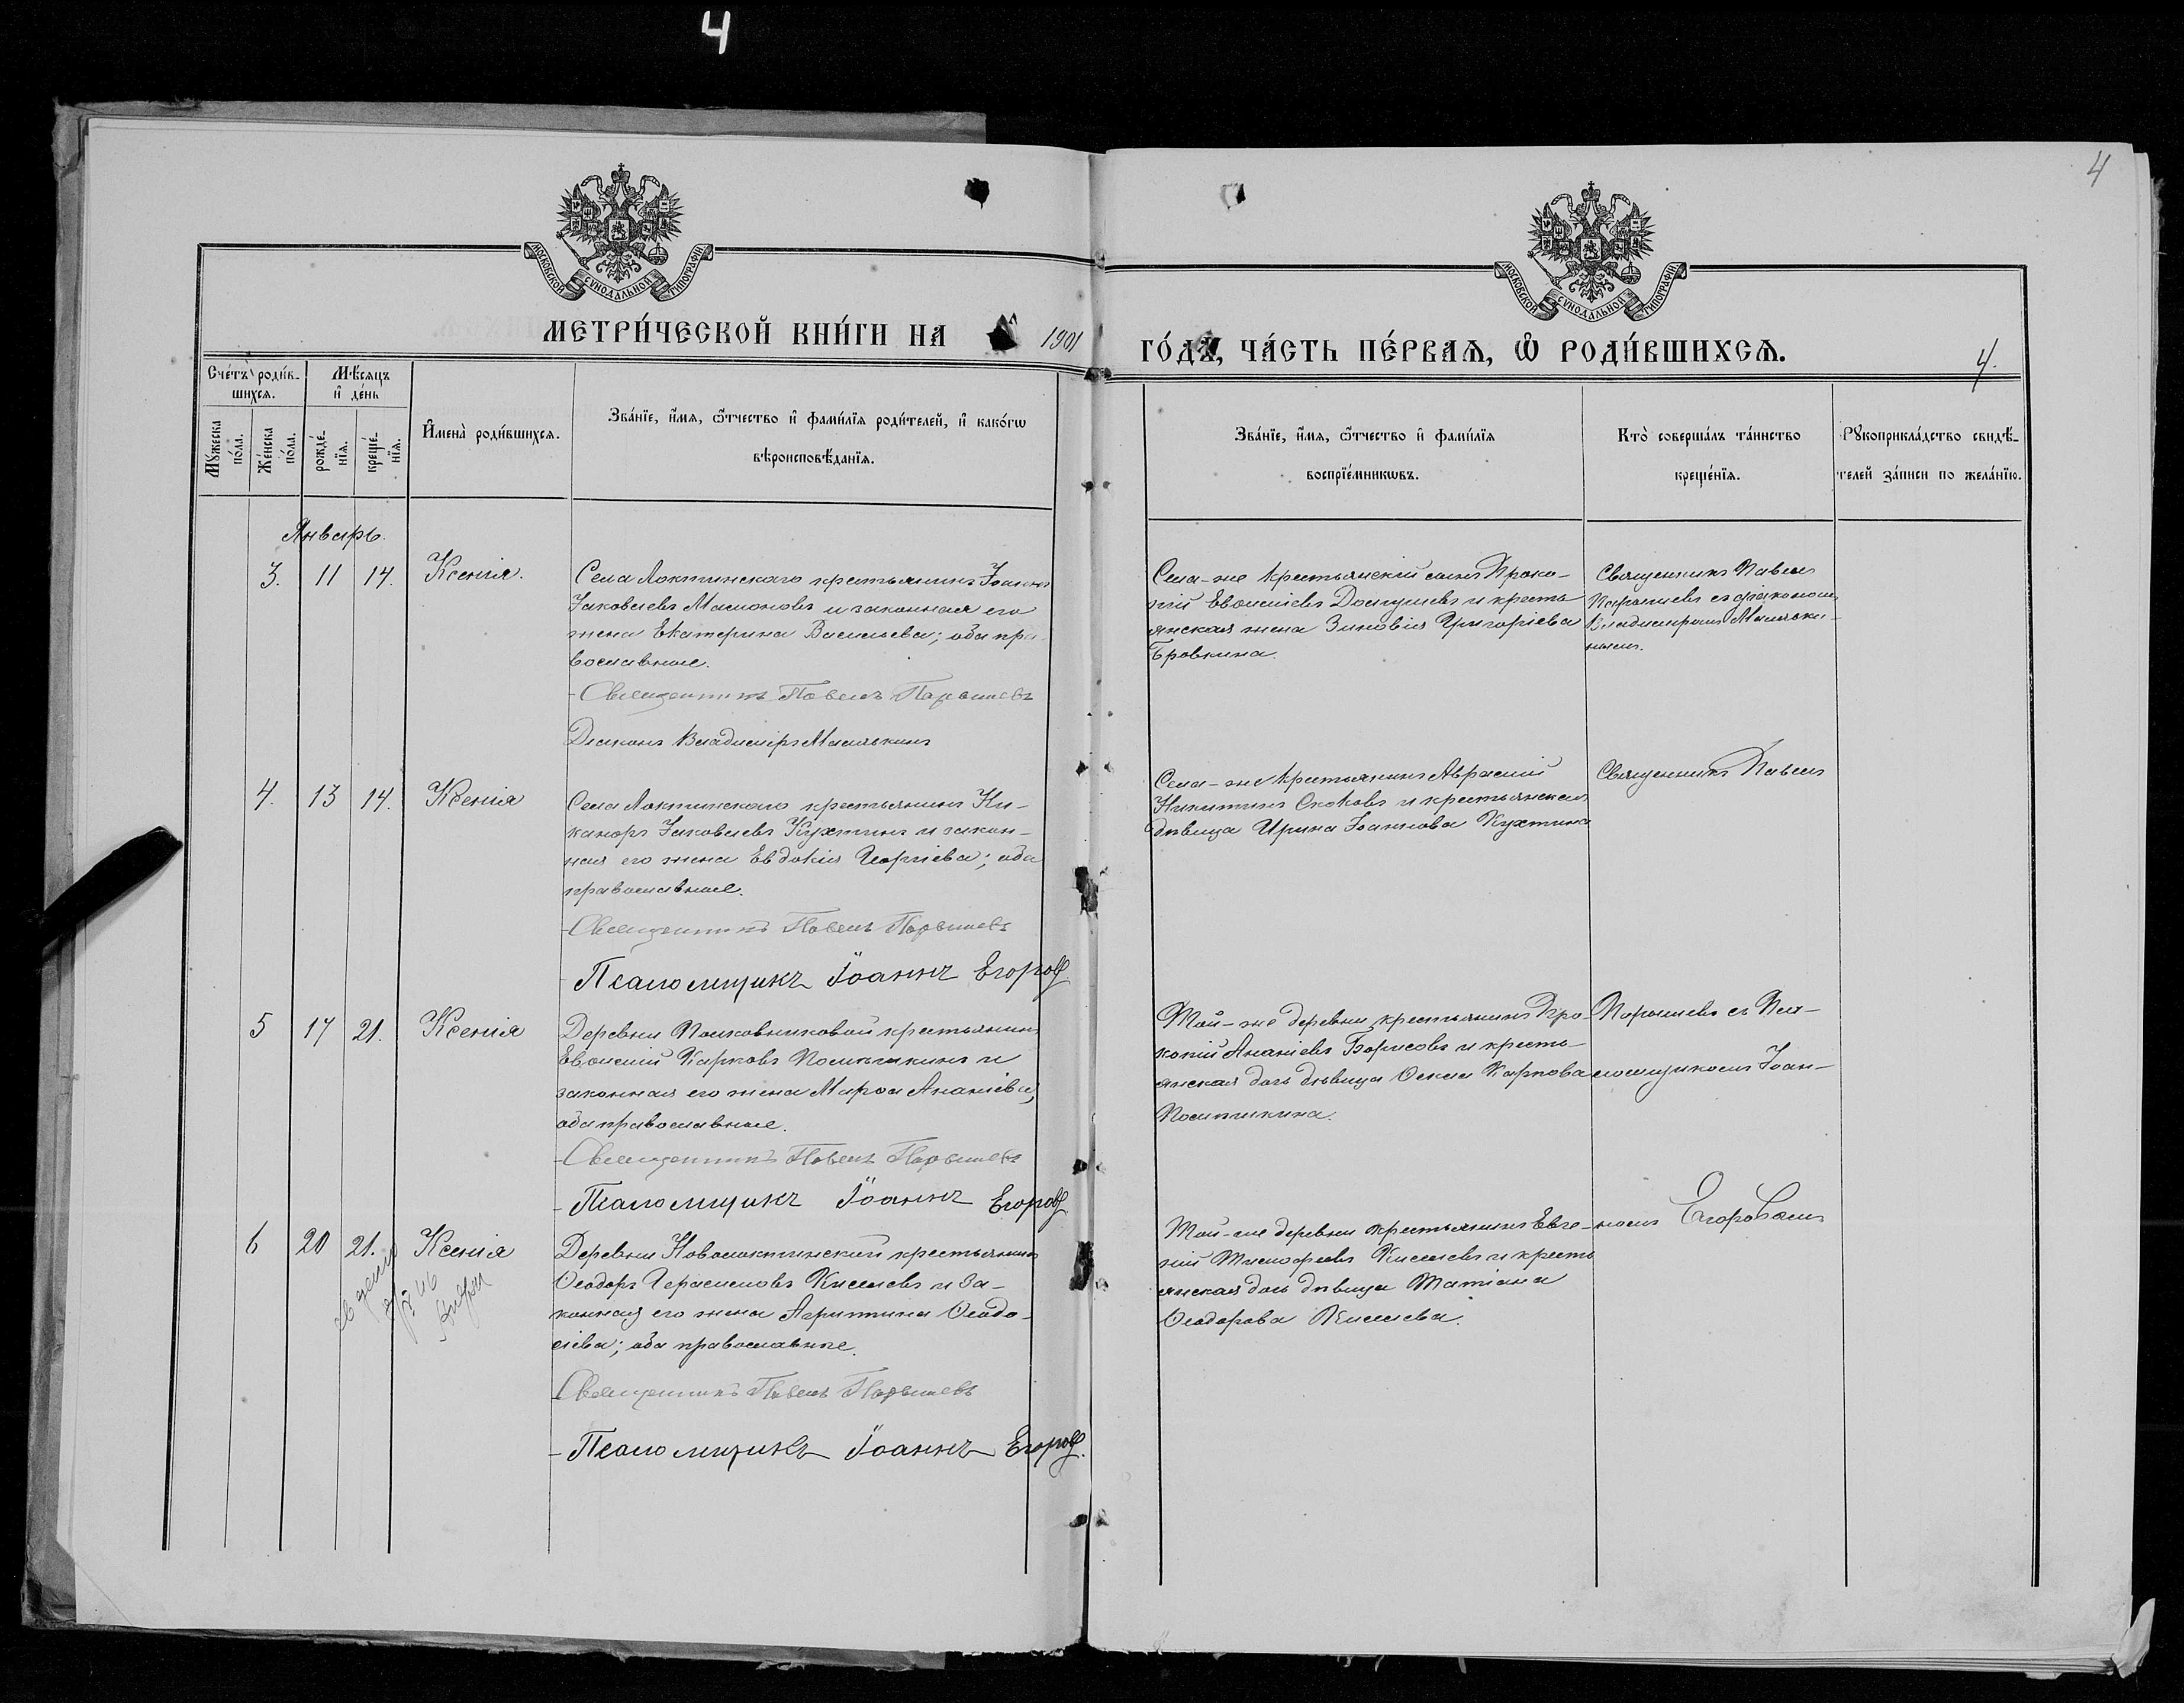 4
4
МОСКОВСКОЙ СѴНОДАЛЬНОЙ ТИПОГРАФІИ
МОСКОВСКОЙ СѴНОДАЛЬНОЙ ТИПОГРАФІИ
МЕТРИ́ЧЕСКОЙ КНИ́ГИ НА 1901 ГО́ДЪ, ЧА́СТЬ ПЕ́РВАѦ, Ѡ҆ РОДИ́ВШИХСѦ.
4.
Сче́тъ роди́в-
шихсѧ.
Мѣ́сѧцъ
и҆ де́нь
Мꙋ́жеска
по́ла.
Же́нска
по́ла.
рожде́-
нїѧ.
креще́-
нїѧ.
И҆мена̀ роди́вшихсѧ.
Зва́нїе, и҆́мѧ, ѻ҆́тчество и҆ фами́лїѧ роди́телей, и҆ како́гѡ
вѣроисповѣ́данїѧ.
Зва́нїе, и҆́мѧ, ѻ҆́тчество и҆ фами́лїѧ
воспрїе́мникѡвъ.
Кто̀ соверша́лъ та́инство
креще́нїѧ.
Рꙋкоприкла́дство свидѣ́-
телей за́писи по жела́нїю.
Январь.
3. 11 14. Ксенія.
Села Локтинскаго крестьянинъ Іоаннъ
Іаковлевъ Мамоновъ и законная его
жена Екатерина Васильева; оба пра-
вославные.
Священникъ Павелъ Парышевъ
Діаконъ Владиміръ Масляъкинъ
Села-же крестьянскій сынъ Проко-
пій Евѳиміевъ Долгушевъ и кресть
янская жена Зиновія Григоріева
Бровкина.
Священникъ Павелъ
Парышевъ съ діакономъ
Владиміромъ
4. 13 14. Ксенія
Села Локтинскаго крестьянинъ Ни-
каноръ Іаковлевъ Кухтинъ и закон-
ная его жена Евдокія Георгіева; оба
православные.
Священникъ Павелъ Парышевъ
Псаломщикъ Іоаннъ Егоровъ
Села-же крестьянинъ Аврамій
Никитинъ Скоковъ и крестьянская
дѣвица Ирина Іоаннова Кухтина
Священникъ Павелъ
5 17 21. Ксенія
Деревни Полковниковой крестьянинъ
Евѳимій Карповъ и
законная его жена Марѳа Ананіева;
оба православные.
Священникъ Павелъ Парышевъ
Псаломщикъ Іоаннъ Егоровъ
Той-же деревни крестьянинъ Про-
копій Ананіевъ Борисовъ и кресть-
янская дочь дѣвица Карпова
Парышевъ съ Пса-
ломщикомъ Іоан-
6 20 21. Ксенія
Деревни Новолоктинской крестьянинъ
Ѳеодоръ Герасимовъ Киселевъ и за-
конная его жена Агрипина Ѳеодо-
сіева; оба православные.
Священникъ Павелъ Парышевъ
Псаломщикъ Іоаннъ Егоровъ.
Той-же деревни крестьянинъ Евге-
ній Тимофеевъ Киселевъ и кресть
янская дочь дѣвица Татіана
Ѳеодорова Киселева.
номъ Егоровымъ